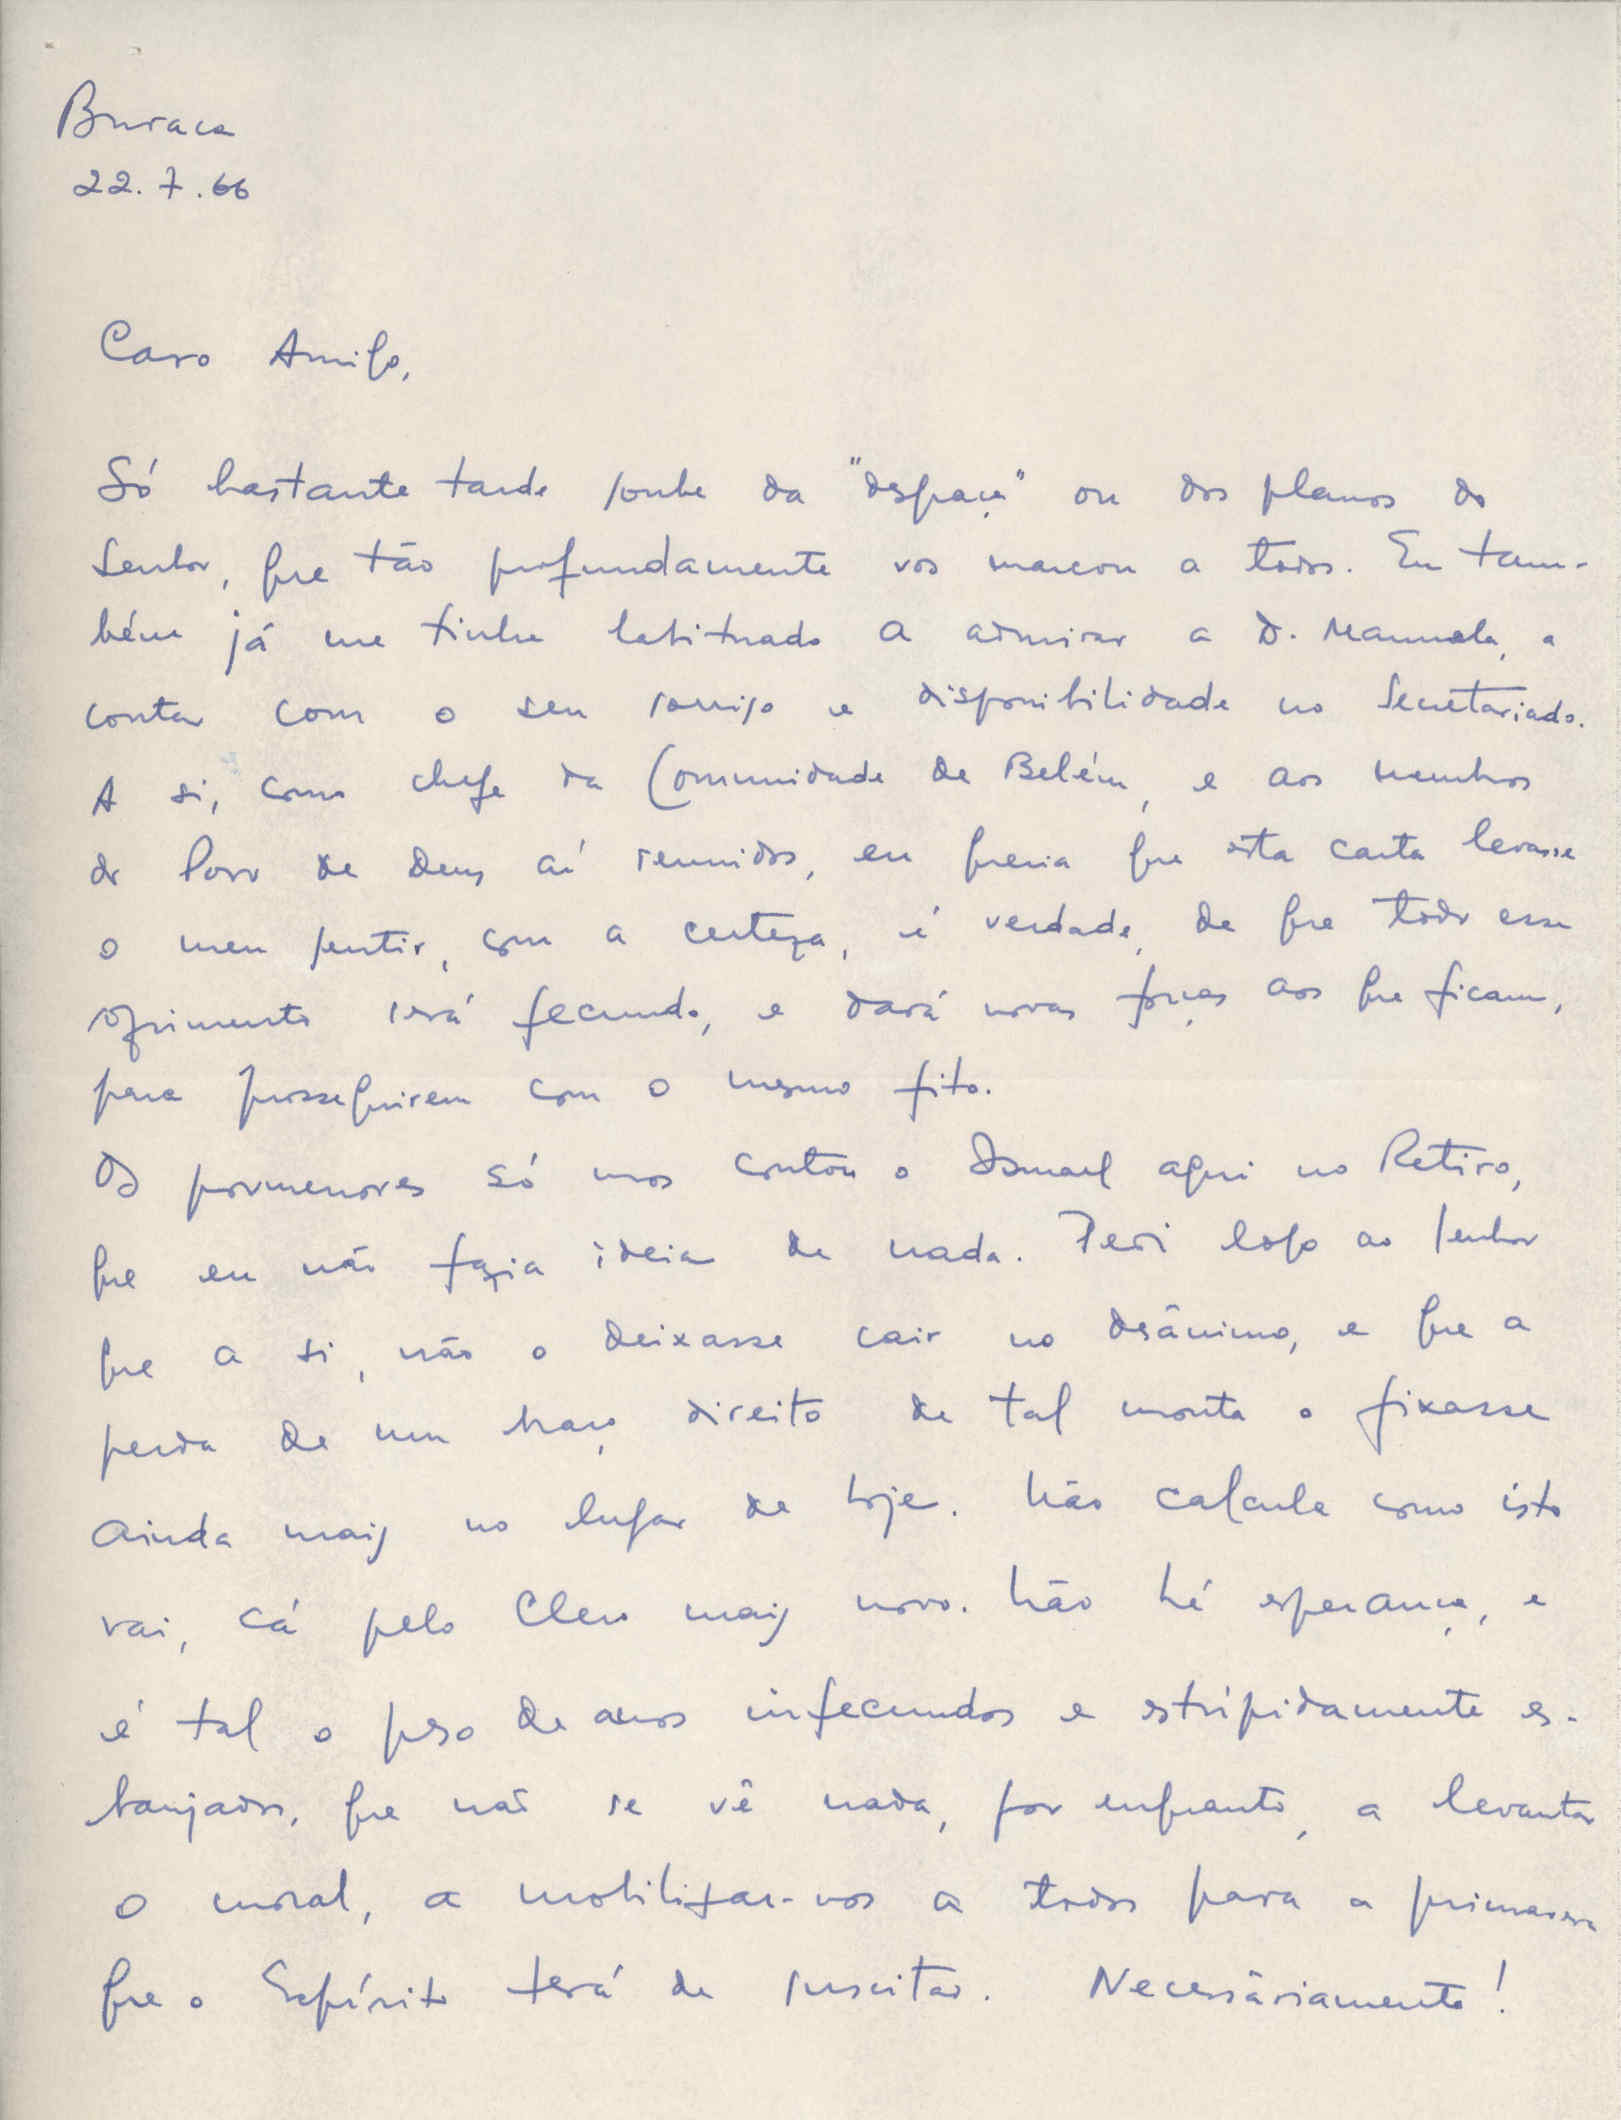 Buraca
22.7.66
Caro Amigo,
Só bastante tarde soube da "desgraça" ou dos planos do
Senhor, que tão profundamente vos marcou a todos. Eu tam-
bém já me tinha habituado a admirar a D. Manuela, a
contar com o seu sorriso e disponibilidade no Secretariado.
A si, como chefe da Comunidade de Belém, e aos membros
do Povo de Deus aí reunidos, eu queria que esta carta levasse
o meu sentir, com a certeza, é verdade, de que todo esse
sofrimento será fecundo, e dará novas forças aos que ficam,
para prosseguirem com o mesmo fito.
Os pormenores só nos contou o Ismael aqui no Retiro,
que eu não fazia ideia de nada. Pedi logo ao Senhor
que a si, não o deixasse cair no desânimo, e que a
perda de um braço direito de tal monta o fixasse
ainda mais no lugar de hoje. Não calcula como isto
vai, cá pelo Clero mais novo. Não há esperança, e
é tal o peso de anos infecundos e estúpidamente es-
banjados, que não se vê nada, por enquanto, a levantar
o moral, a mobilizar-nos a todos para a primavera
que o Espírito terá de suscitar. Necessàriamente!